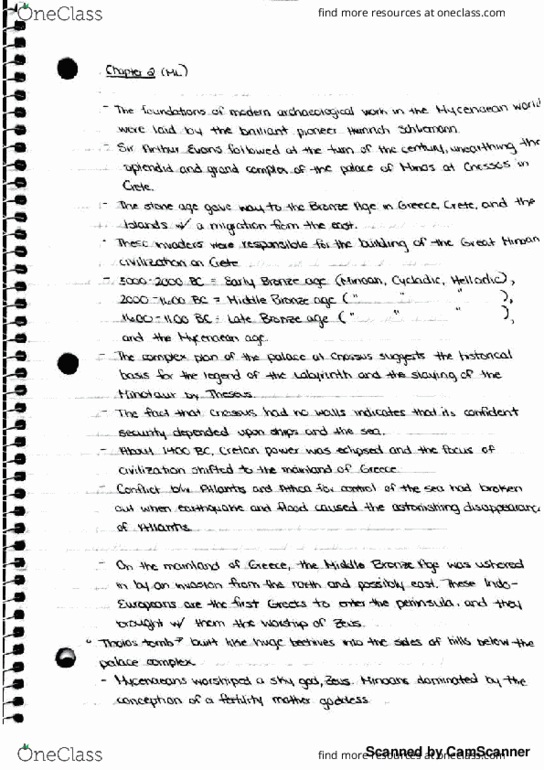 OneClass
find more resources at oneclass.com
Chapter 2 (ML)
- The foundations of modern archaeological work in the Mycenaean world
were laid by the brilliant pioneer Heinrich Schliemann.
- Sir Arthur Evans followed at the turn of the century, unearthing the
splendid and grand complex of the palace of Minos at Cnossos in
Crete.
- The stone age gave way to the Bronze Age in Greece, Crete, and the
Islands w/ a migration from the east.
- These invaders were responsible for the building of the Great Minoan
civilization on Crete
- 3000-2000 BC = Early Bronze age (Minoan, Cycladic, Helladic),
2000-1600 BC = Middle Bronze age (" "),
1600-1100 BC = Late Bronze age (" "),
and the Mycenaean age.
- The complex plan of the palace at Cnossus suggests the historical
basis for the legend of the Labyrinth and the slaying of the
Minotaur by Theseus.
- The fact that Cnossus had no walls indicates that its confident
security depended upon ships and the sea.
- About 1400 BC, Cretan power was eclipsed and the focus of
civilization shifted to the mainland of Greece
- Conflict b/w Atlantis and Attica for control of the sea had broken
out when earthquake and flood caused the astonishing disappearance
of Atlantis
- On the mainland of Greece, the Middle Bronze Age was ushered
in by an invasion from the north and possibly east. These Indo-
Europeans are the first Greeks to enter the peninsula, and they
brought w/ them the worship of Zeus.
" Tholos tomb" built like huge beehives into the sides of hills below the
palace complex
- Mycenaeans worshiped a sky god, Zeus. Minoans dominated by the
conception of a fertility mother goddess
OneClass
find more resources at oneclass.com
Scanned by CamScanner